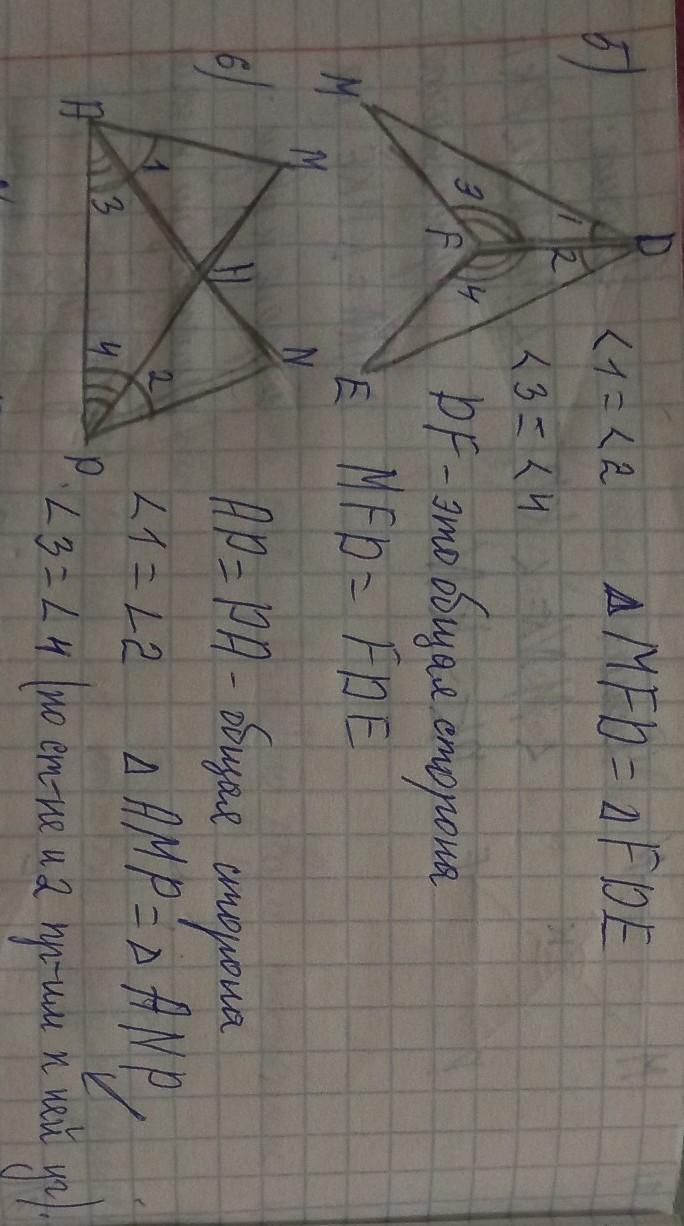 б)
D
1 2
3 4
F
M E
∠1 = ∠2 △MFD = △FDE
∠3 = ∠4
DF - это общая сторона
MFD = FDE
в)
M N
H
1 2
3 4
A P
AP = PA - общая сторона
∠1 = ∠2 △AMP = △ANP
∠3 = ∠4 (по ст-не и 2 пр-им к ней уг).